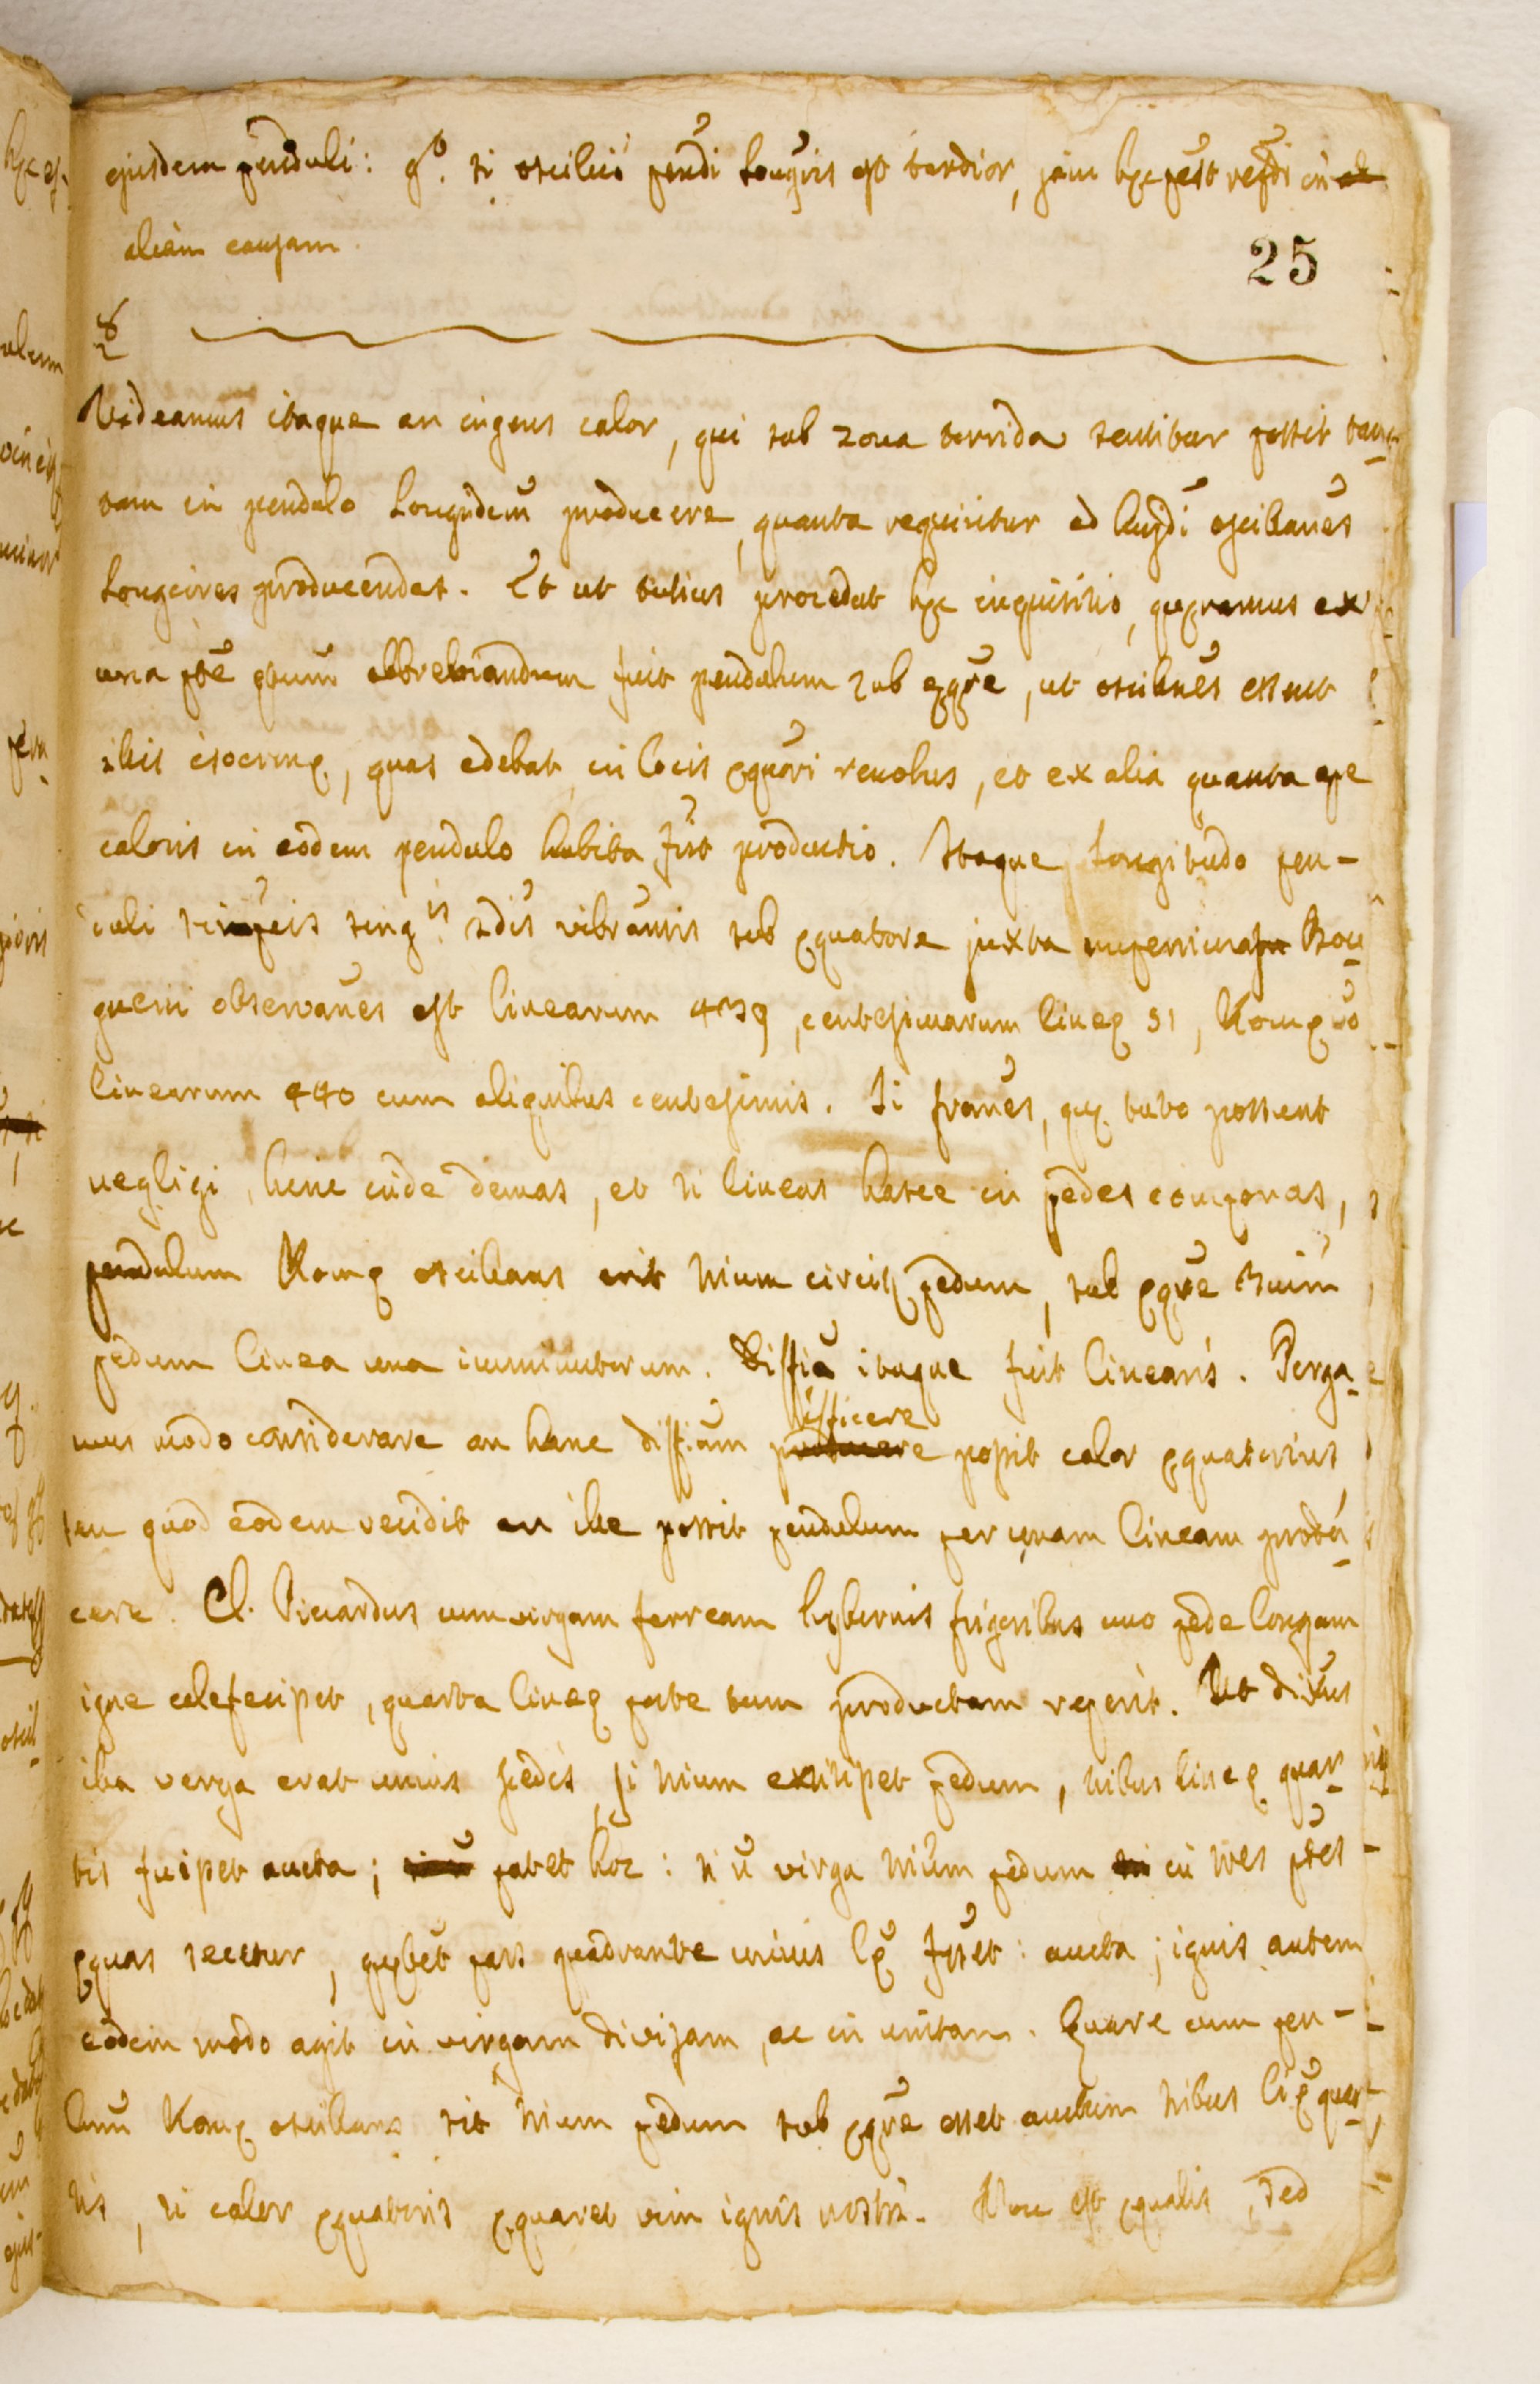 ejusdem penduli: g.º si oscilió pendi longiris est tardior, jam hæc pest refdi in
aliam causam.
25
8
Videamus itaque an ingens calor, qui sub zona torrida sentitur possit tan-
tam in pendulo longidem producere, quanta requiritur ad hujdi oscillanes
longiores producendas. Et ut tutius procedat hæc inquisitio, quæramus ex
una pte qtum abbreviandum fuit pendulum sub æqre, ut oscillnes essent
illis isocronæ, quas edebat in locis æquori remotis, et ex alia quanta ope
caloris in eodem pendulo habita fuit productio. Itaque longitudo pen-
duli simplicis sing.is 2dis vibrantis sub æquatore juxta Bou-
guerii observanes est linearum 439, centesimarum lineæ 21, Romæ vo
linearum 440 cum aliquibus centesimis. Si franes, quæ tuto possent
negligi, hinc inde demas, et si lineas hasce in pedes componas,
pendulum Romæ oscillans erit trium circit pedum, sub æqre trium
pedum linea una imminutorum. Diffia itaque fuit linearis. Perga-
mus modo considerare an hanc diffiam efficere possit calor æquatorius,
seu quod eodem recidit an ille possit pendulum per unam lineam produ-
cere. Cl. Picardus cum virgam ferream hybernis frigoribus uno pede longam
igne calefecisset, quarta lineæ parte tum productam reperit. Ut dixus
illa verga erat unius pedis, si trium extitisset pedum, tribus lineæ quar-
tis fuisset aucta; patet hoc: si u virga trium pedum in tres ptes
æquas secetur, quæbet pars quadrante unius læ fuset aucta; ignis autem
eodem modo agit in virgam divisam, ac in unitam. Quare cum pen-
lum Romæ oscillans sit trium pedum sub æqre esset auctum tribus liæ quar-
tis, si calor æquatoris æquaret vim ignis nostri. Non est æqualis, sed